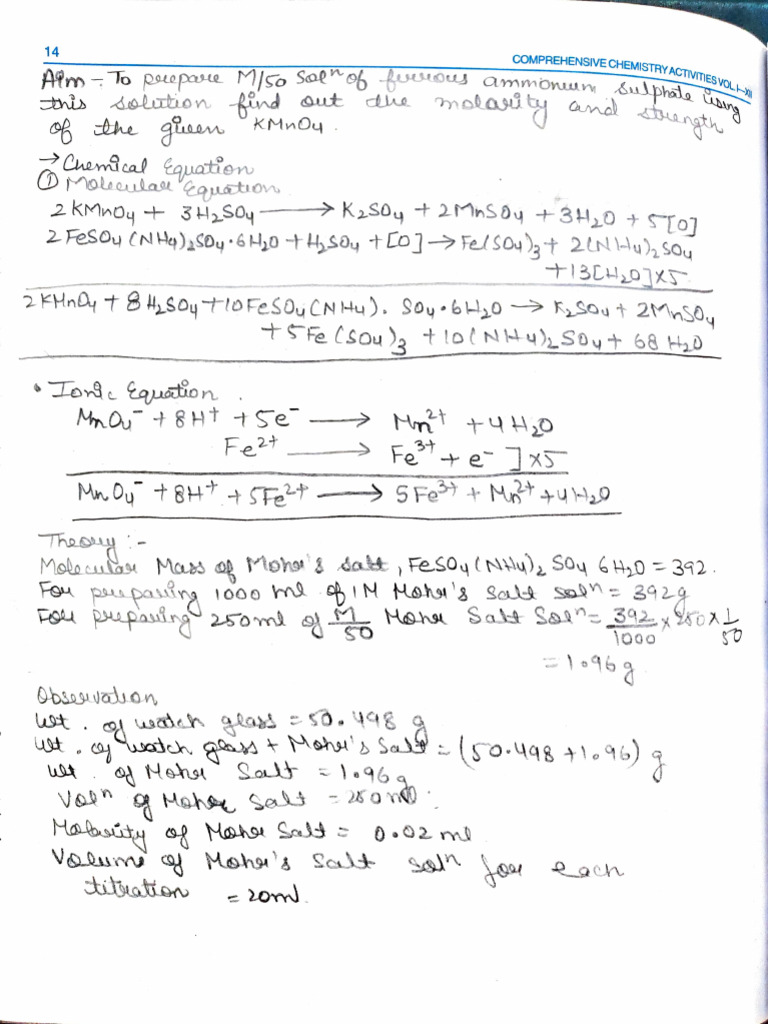 14
COMPREHENSIVE CHEMISTRY ACTIVITIES VOL.I-XII
Aim - To prepare M/50 Solⁿ of ferrous ammonium sulphate using
this solution find out the molarity and strength
of the given KMnO4.
→ Chemical Equation
① Molecular Equation
2 KMnO4 + 3H2SO4 ⟶ K2SO4 + 2MnSO4 + 3H2O + 5[O]
2 FeSO4 (NH4)2SO4·6H2O + H2SO4 + [O] → Fe(SO4)3 + 2(NH4)2SO4
+ 13[H2O] x 5
2 KMnO4 + 8 H2SO4 + 10 FeSO4 (NH4). SO4·6H2O → K2SO4 + 2MnSO4
+ 5Fe (SO4)3 + 10(NH4)2SO4 + 68 H2O
• Ionic Equation.
MnO4⁻ + 8H⁺ + 5e⁻ ⟶ Mn²⁺ + 4H2O
Fe²⁺ ⟶ Fe³⁺ + e⁻ ] x5
MnO4⁻ + 8H⁺ + 5Fe²⁺ ⟶ 5Fe³⁺ + Mn²⁺ + 4H2O
Theory :-
Molecular Mass of Mohr's Salt, FeSO4(NH4)2 SO4 6H2O = 392.
For preparing 1000 ml of 1M Mohr's Salt solⁿ = 392g
For preparing 250ml of M/50 Mohr Salt Solⁿ = 392/1000 x 250 x 1/50
= 1.96g
Observation
Wt. of watch glass = 50.498 g
Wt. of watch glass + Mohr's Salt = (50.498 + 1.96) g
Wt. of Mohr Salt = 1.96g
Volⁿ of Mohar Salt = 250 ml.
Molarity of Mohr Salt = 0.02 ml
Volume of Mohr's Salt solⁿ for each
titration = 20ml.